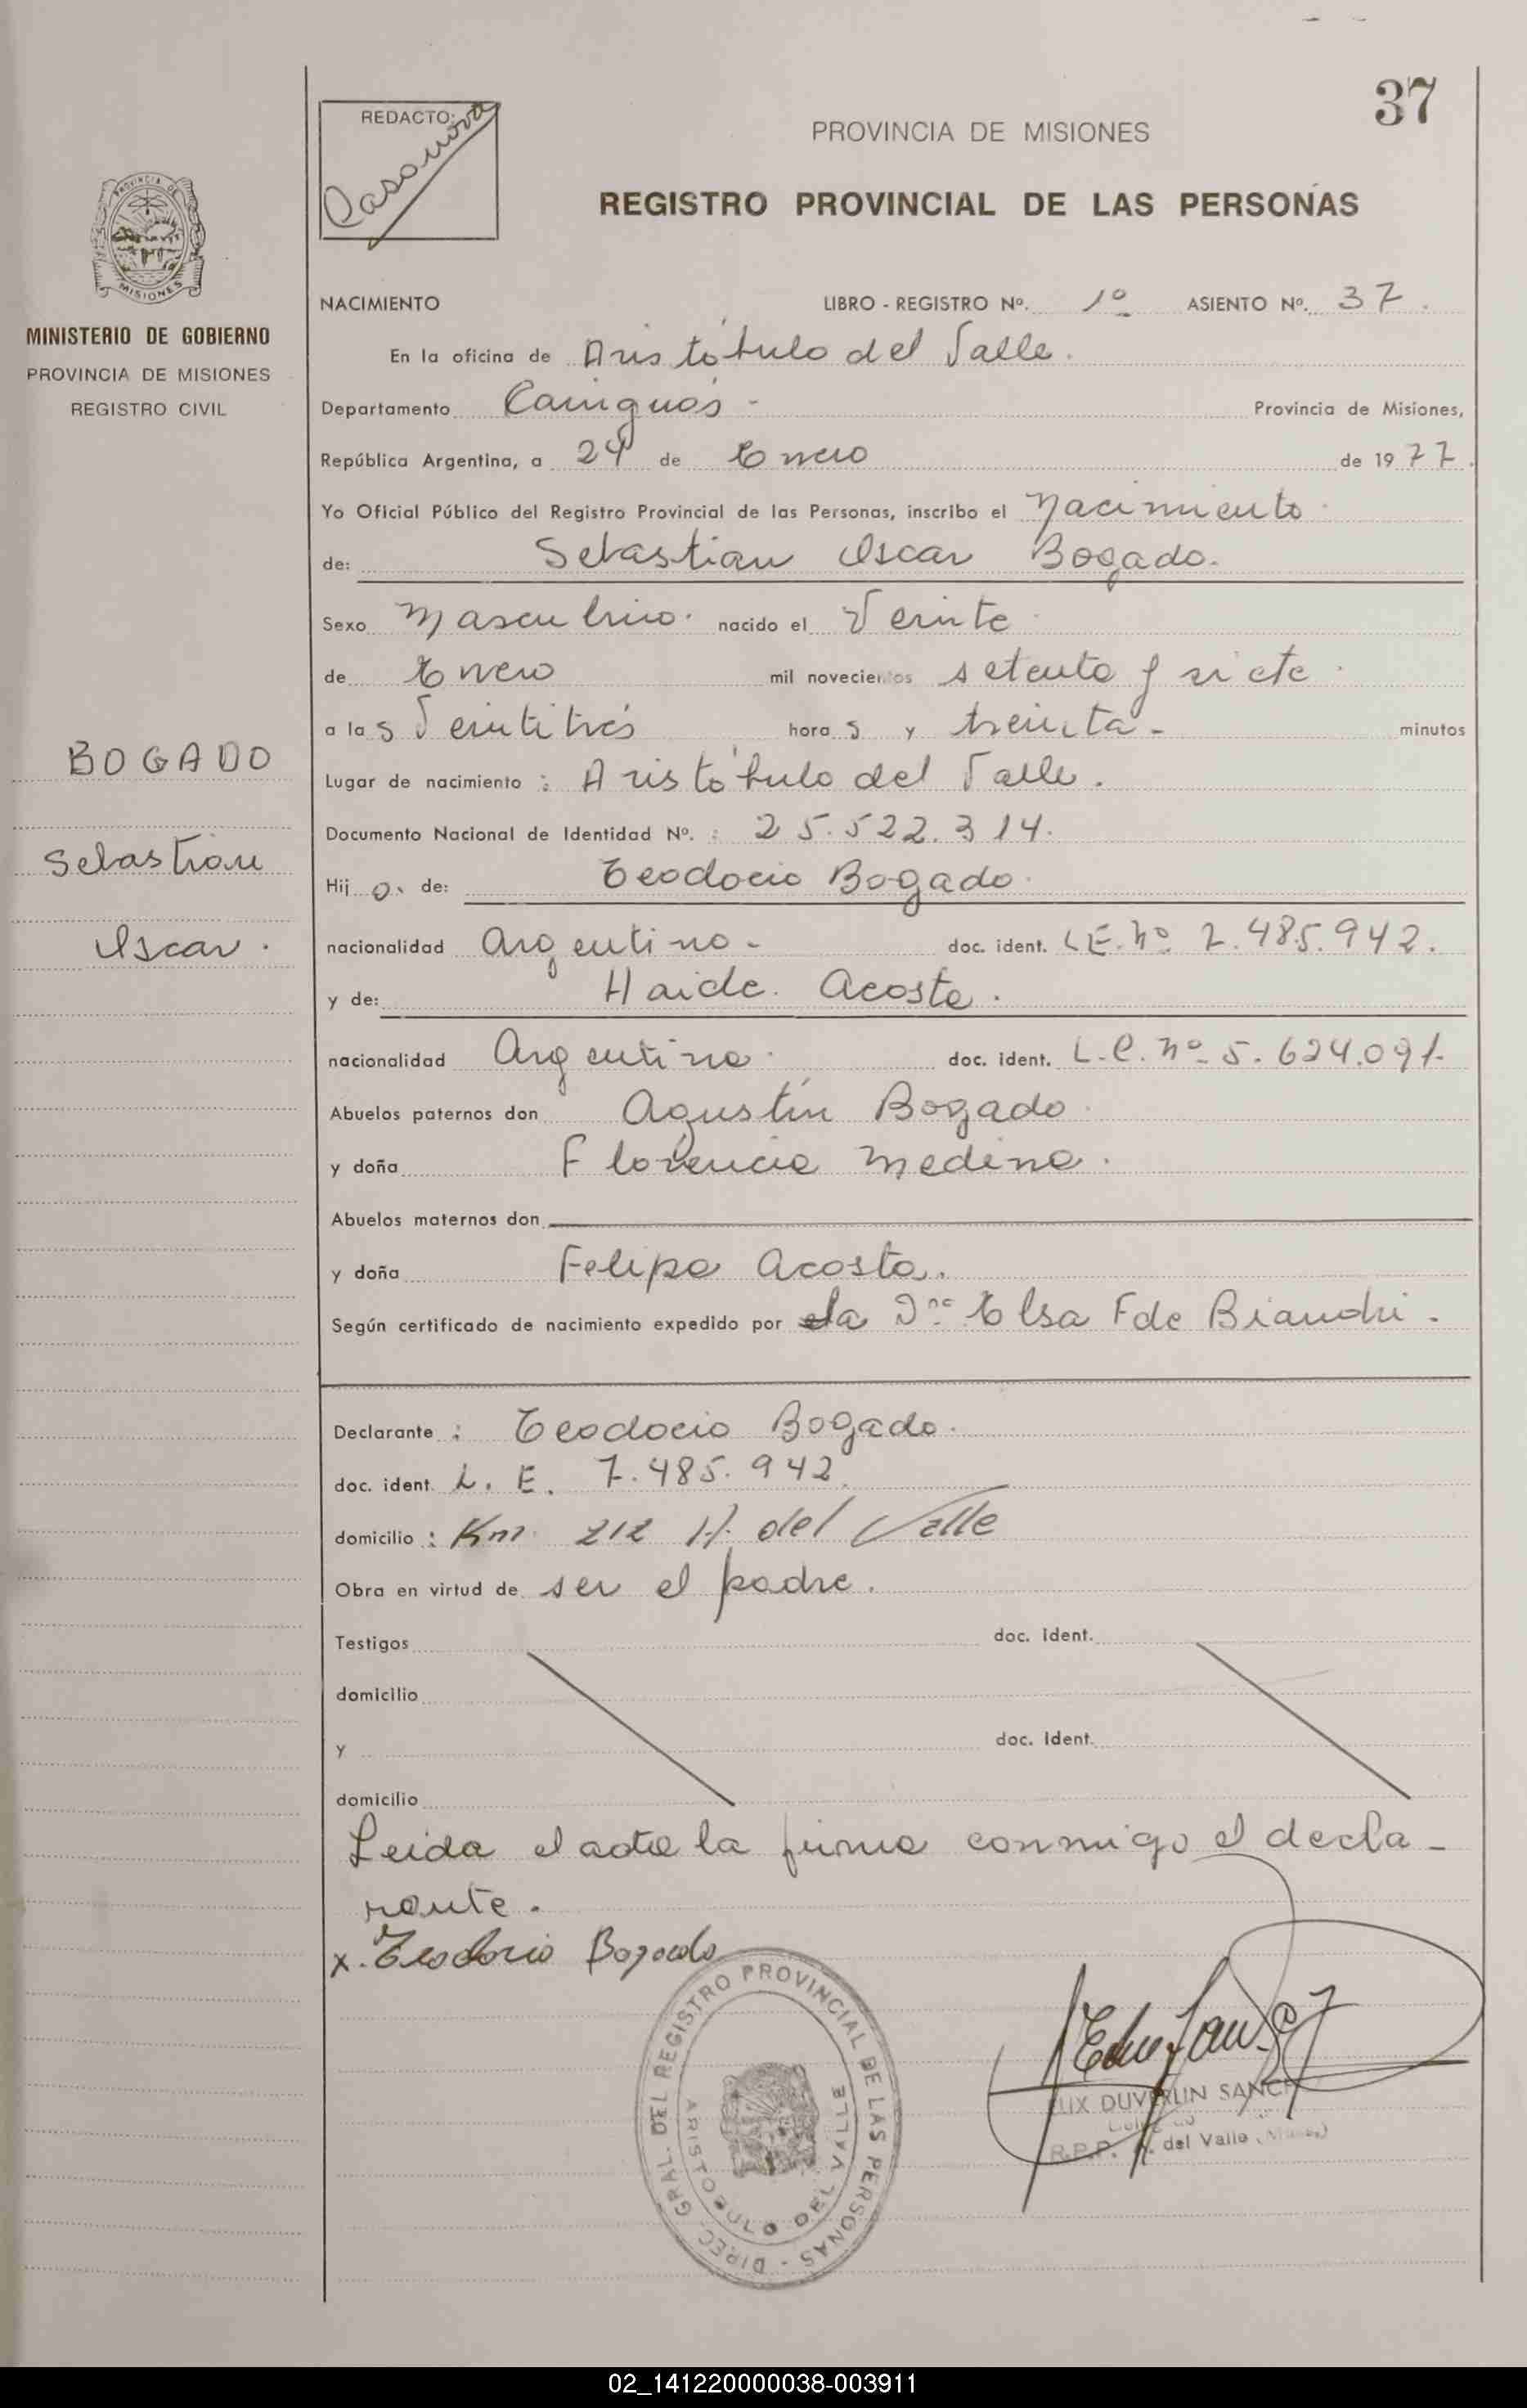 37
REDACTO:
Casanova
PROVINCIA DE MISIONES
REGISTRO PROVINCIAL DE LAS PERSONAS
PROVINCIA DE
MISIONES
MINISTERIO DE GOBIERNO
PROVINCIA DE MISIONES
REGISTRO CIVIL
BOGADO
Sebastian
Oscar.
NACIMIENTO LIBRO - REGISTRO Nº. 1º ASIENTO Nº. 37.
En la oficina de Aristóbulo del Valle.
Departamento Cainguás - Provincia de Misiones,
República Argentina, a 24 de Enero de 1977.
Yo Oficial Público del Registro Provincial de las Personas, inscribo el Nacimiento
de: Sebastian Oscar Bogado.
Sexo Masculino. nacido el Veinte
de Enero mil novecientos setenta y siete.
a las Veintitrés horas y treinta - minutos
Lugar de nacimiento : Aristóbulo del Valle.
Documento Nacional de Identidad Nº. : 25.522.314.
Hijo. de: Teodocio Bogado.
nacionalidad Argentino - doc. ident. L.E. Nº 7.485.942.
y de: Haide. Acosta.
nacionalidad Argentina. doc. ident. L.C. Nº 5.624.091.
Abuelos paternos don Agustín Bogado
y doña Florencia Medina.
Abuelos maternos don
y doña Felipa Acosta.
Según certificado de nacimiento expedido por la Dra Elsa F de Bianchi.
Declarante : Teodocio Bogado.
doc. ident. L. E. 7.485.942.
domicilio : Km 212 A. del Valle
Obra en virtud de ser el padre.
Testigos doc. ident.
domicilio
y doc. ident.
domicilio
Leida el acta la firma conmigo el decla-
rante.
x. Teodocio Bogado
DIREC. GRAL. DEL REGISTRO PROVINCIAL DE LAS PERSONAS -
ARISTOBULO DEL VALLE
DUVERLIN
R.P.P. A. del Valle
02_141220000038-003911